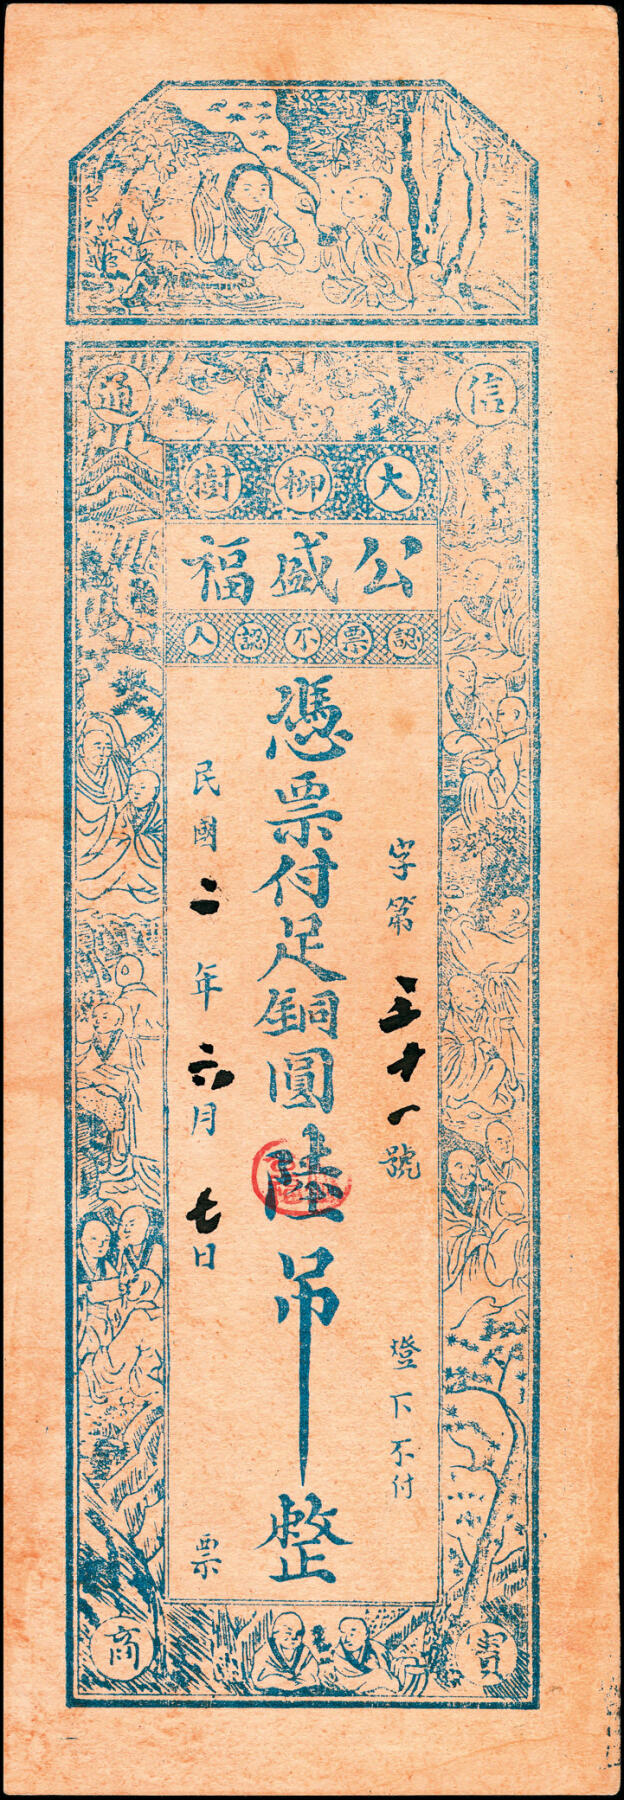 信通
大柳樹
公盛福
認票不認人
字第三十一號
燈下不付
憑票付足銅圓陸吊整
民國二年六月七日
票
寶商